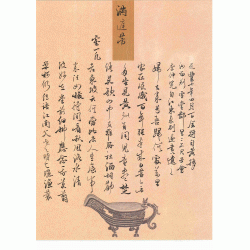 滿庭芳
元豐七年四月一日余將去黃移汝
留別雪堂鄰里二三君子會
李仲覽自江東來別遂書以遺之
歸去來兮吾歸何處萬里
家在岷峨百年強半來日苦無
多坐見黃州再閏兒童盡楚
語吳歌山中友雞豚社酒相勸
老東坡云何當此去人生底事
來往如梭待閒看秋風洛水清
波好在堂前細柳應念我莫剪
柔柯仍傳語江南父老時與曬漁蓑